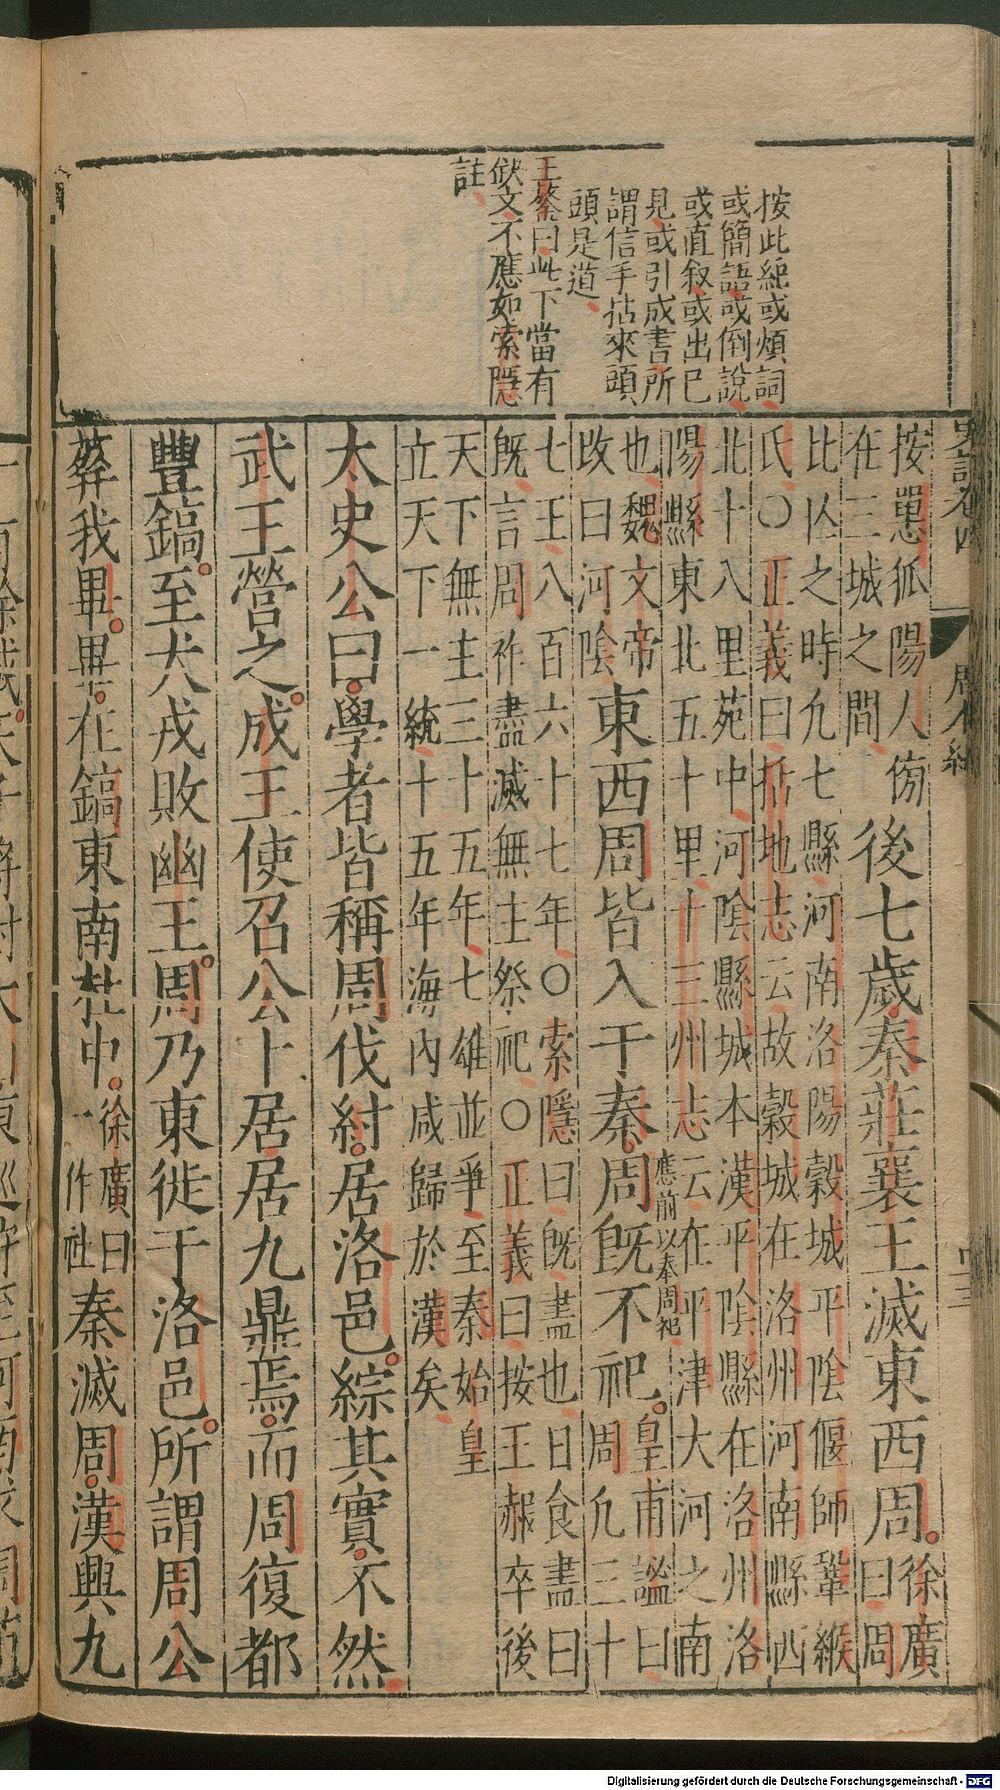 按此紀或煩詞
或簡語或倒說
或直叙或出已
見或引成書所
謂信手拈來頭
頭是道
王鏊曰此下當有
缺文不應如索隱
註
史記卷四
周本紀
按䍐狐陽人傍
在三城之間
後七歲秦莊襄王滅東西周
徐廣
曰周
比亾之時九七縣河南洛陽穀城平陰偃師鞏緱
氏〇正義曰括地志云故穀城在洛州河南縣西
北十八里苑中河陰縣城本漢平陰縣在洛州洛
陽縣東北五十里十三州志云在平津大河之南
也魏文帝
改曰河陰
東西周皆入于秦周既不祀
應前以奉周祀
皇甫謐曰
周凡三十
七王八百六十七年〇索隱曰既盡也日食盡曰
既言周祚盡滅無主祭祀〇正義曰按王赧卒後
天下無主三十五年七雄並爭至秦始皇
立天下一統十五年海內咸歸於漢矣
太史公曰學者皆稱周伐紂居洛邑綜其實不然
武王營之成王使召公卜居居九鼎焉而周復都
豐鎬至犬戎敗幽王周乃東徙于洛邑所謂周公
葬我畢畢在鎬東南杜中
徐廣曰
一作社
秦滅周漢興九
Digitalisierung gefördert durch die Deutsche Forschungsgemeinschaft - DFG